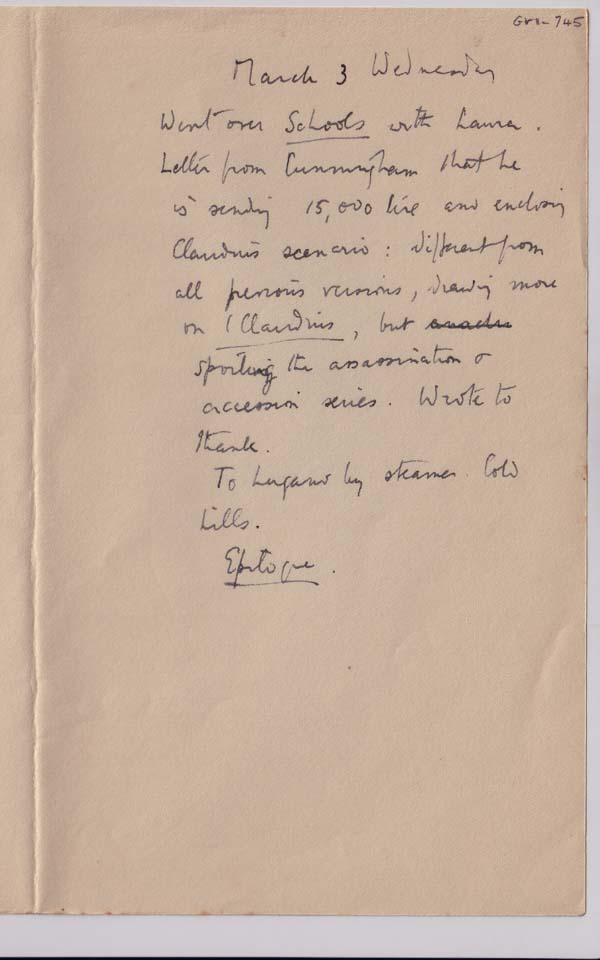 Gra-745
March 3 Wednesday
Went over Schools with Laura.
Letter from Cunningham that he
is sending 15,000 lire and enclosing
Claudius scenario: different from
all previous versions, drawing more
on I Claudius, but
spoiling the assassination &
accession series. Wrote to
thank.
To Lugano by steamer. Cold
hills.
Epilogue.